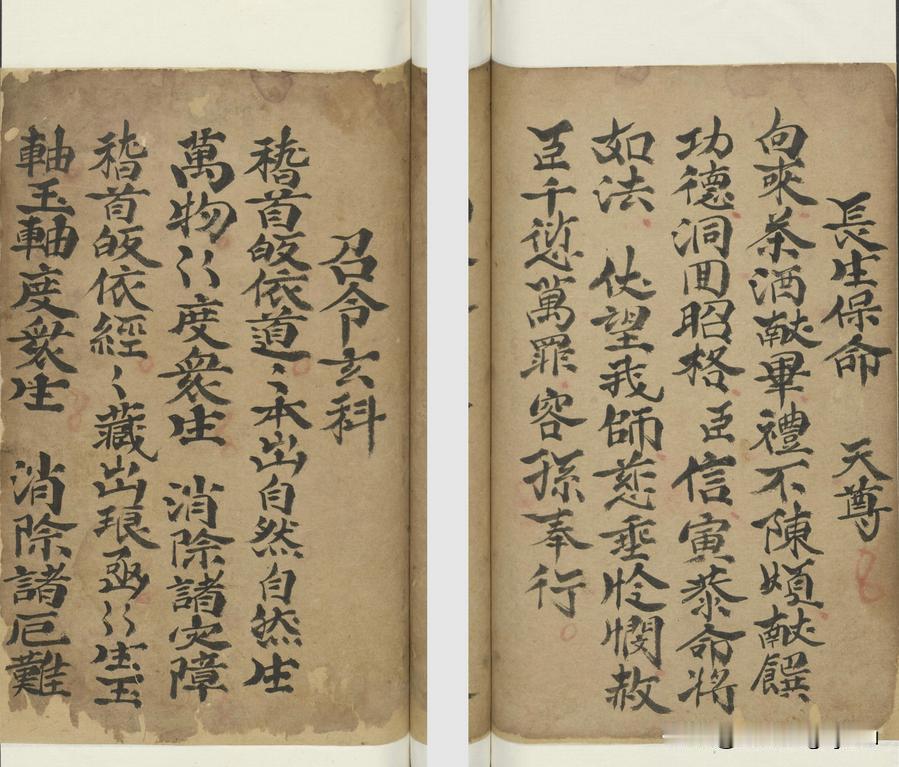 長生保命　天尊
向來茶酒献畢禮不陳煩献饌
功德洞回昭格臣信寅恭命將
如法　伏望我師慈垂怜憫赦
臣千愆萬罪容孫奉行
召令玄科
稽首皈依道〻本出自然自然生
萬物〻〻度衆生　消除諸灾障
稽首皈依經〻藏出琅函〻〻生玉
軸玉軸度衆生　消除諸厄難